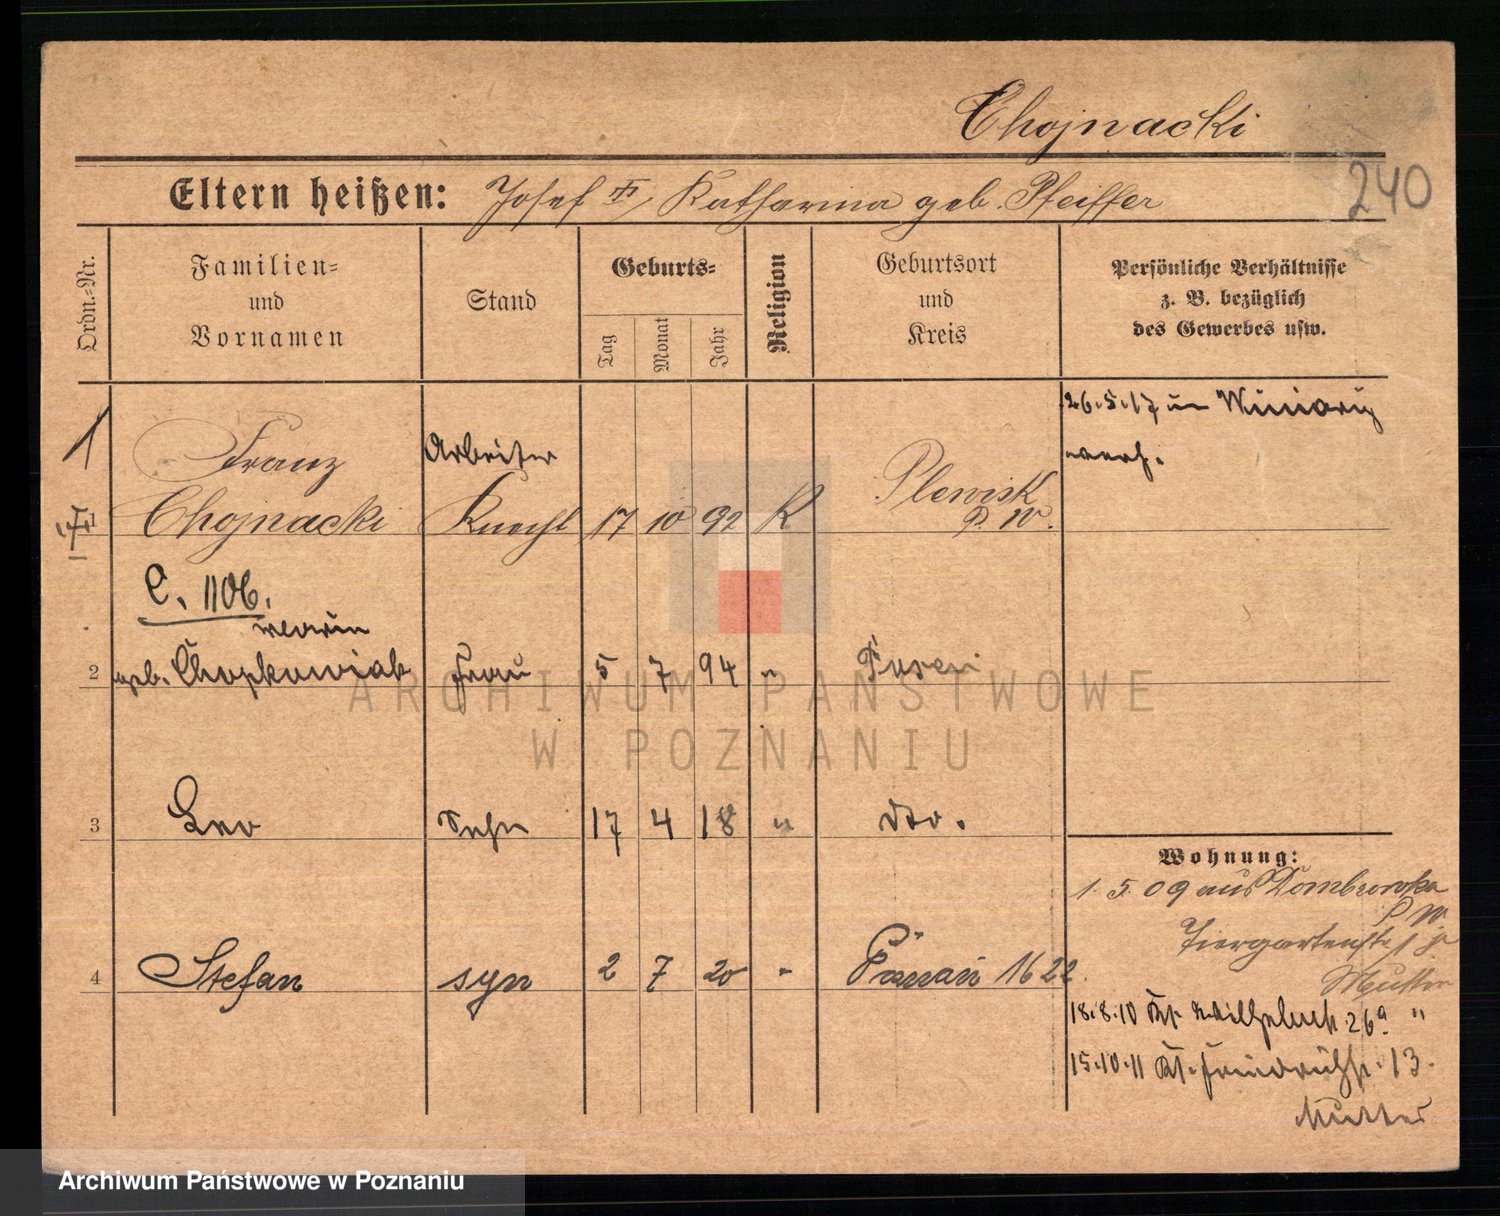 Chojnacki
240
Eltern heißen: Josef Katharina geb. Pfeiffer
Ordn.-Nr.
Familien- und Vornamen
Stand
Geburts-
Tag
Monat
Jahr
Religion
Geburtsort und Kreis
Persönliche Verhältnisse z. B. bezüglich des Gewerbes usw.
26.5.17 in
verh.
1
Franz Arbeiter
Plewisk
1 Chojnacki Knecht 17 10 92 K P. W.
C. 1106.
2 geb. Frau 5 7 94 " Posen
3 Leo Sohn 17 4 18 " dto.
Wohnung:
1. 5. 09 aus Dombrowka
P W
Tiergartenstr
Mutter
4 Stefan syn 2 7 20 " Poznań 1622
18.8.10 26a "
15.10.11 13.
Mutter
ARCHIWUM PAŃSTWOWE
W POZNANIU
Archiwum Państwowe w Poznaniu